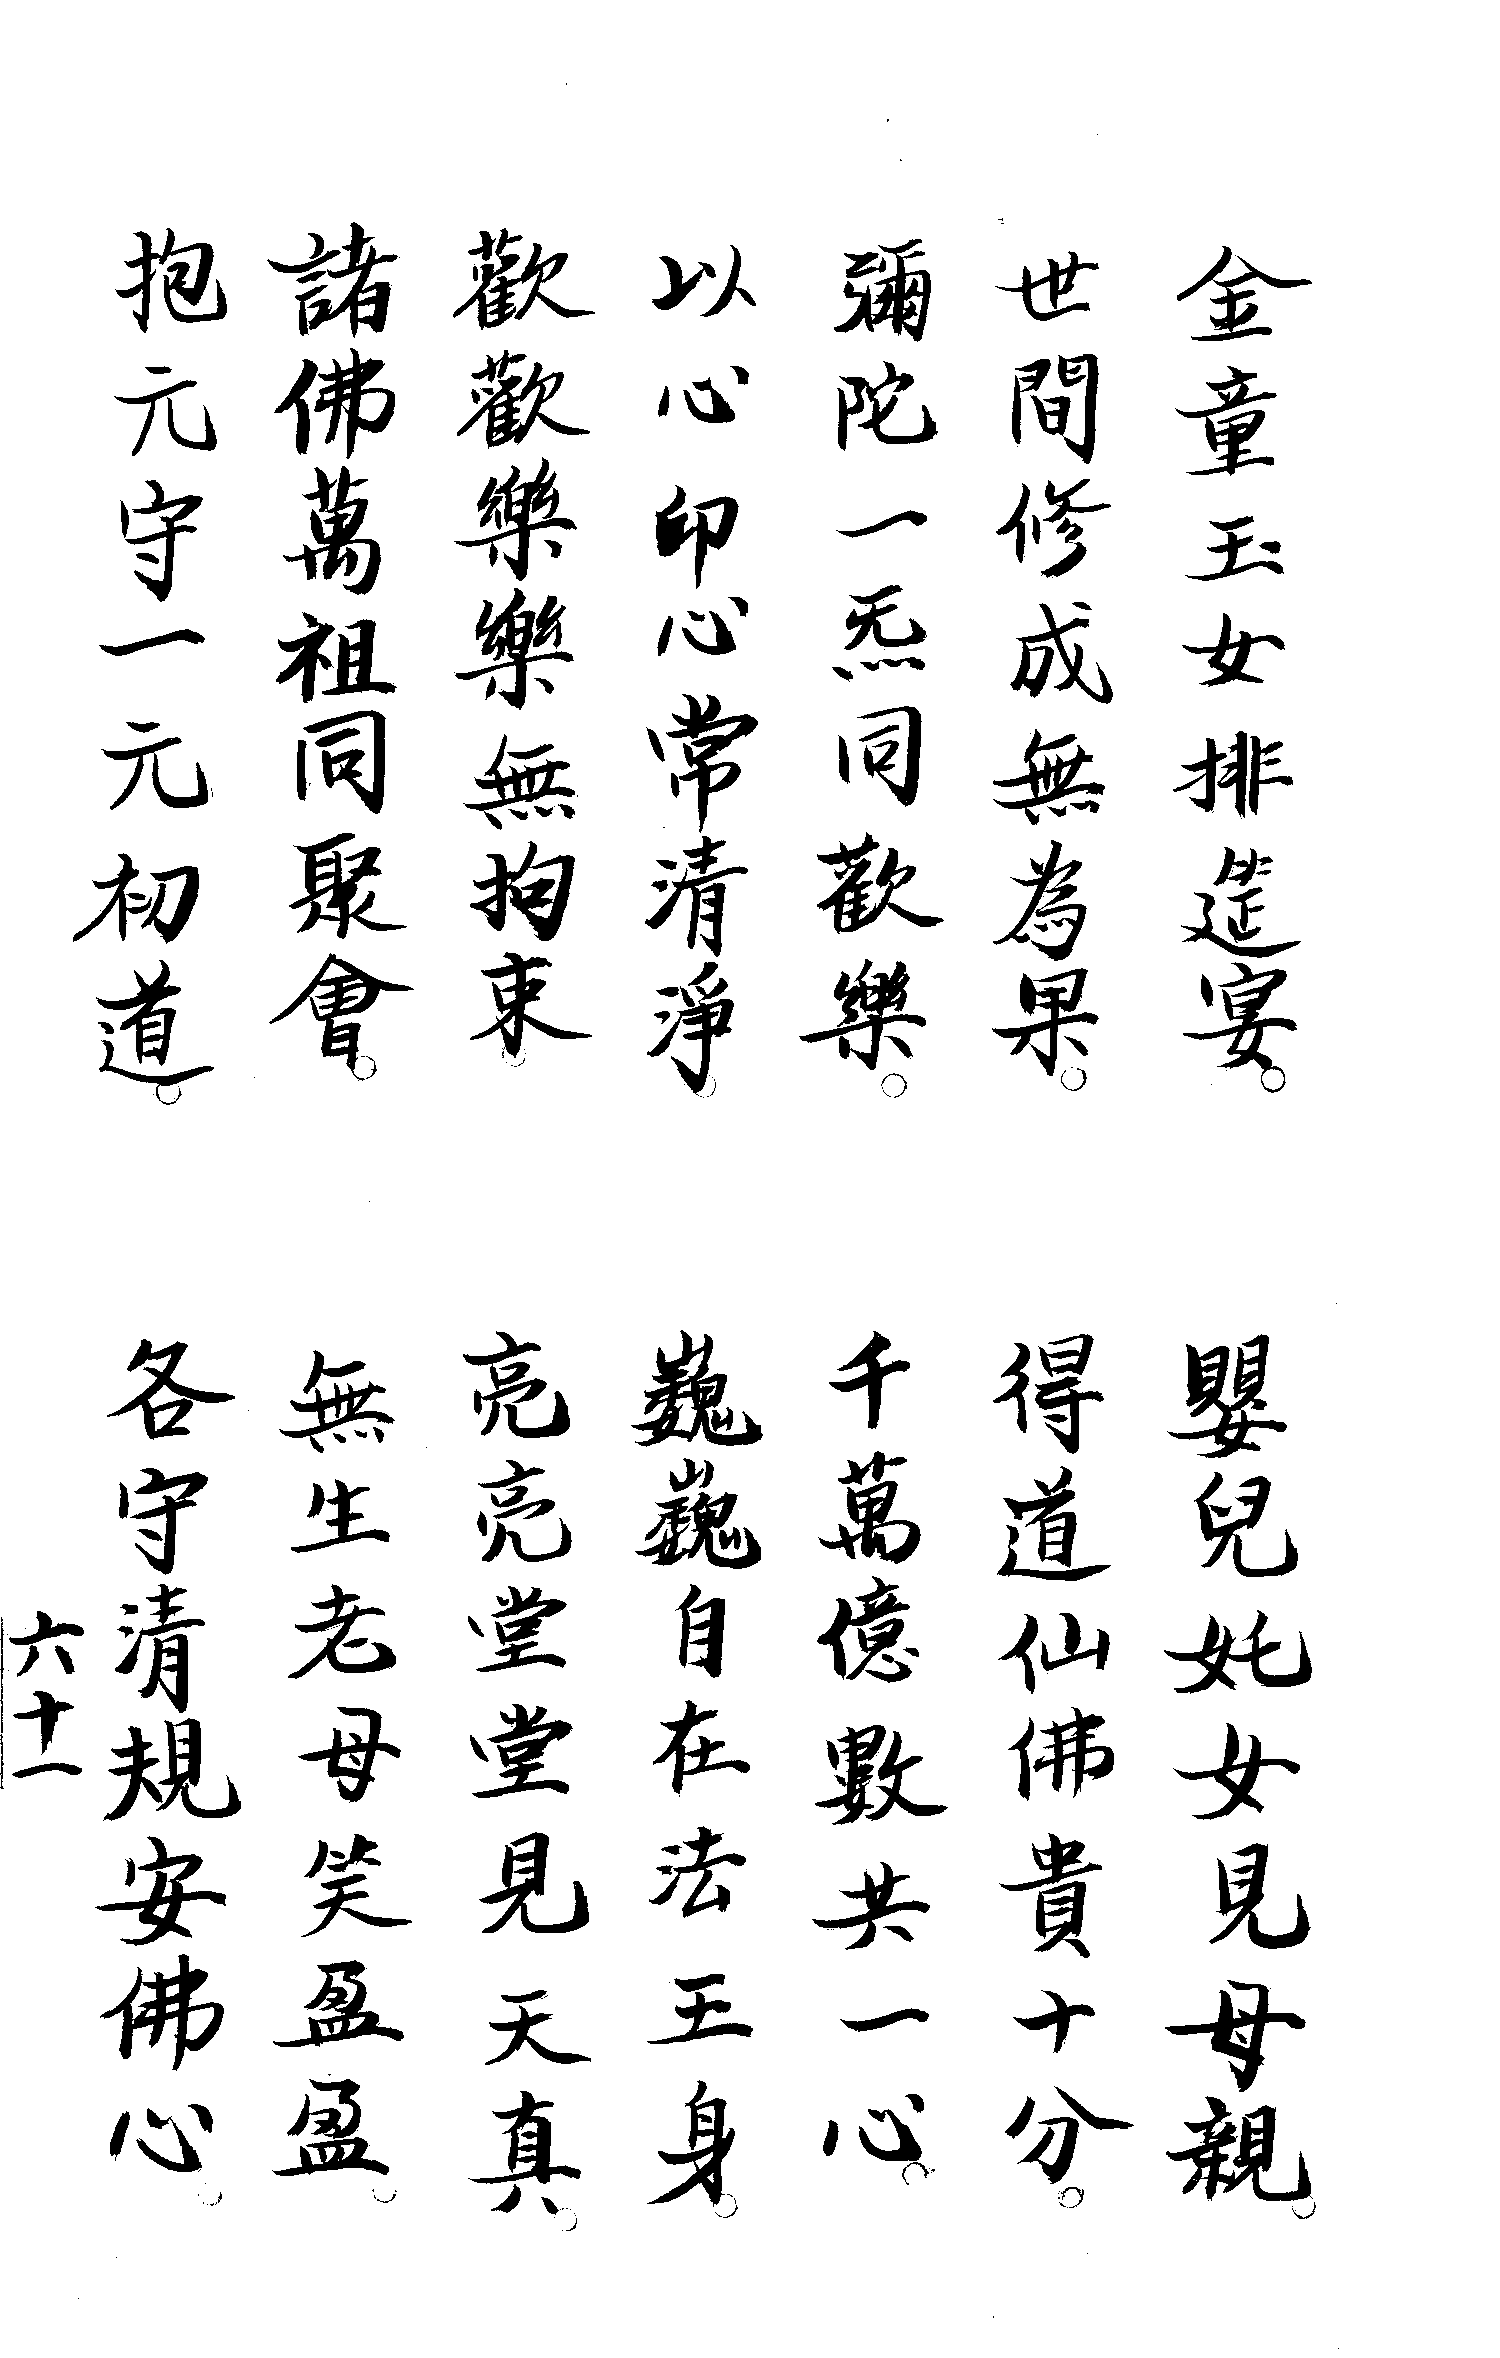 金童玉女排筵宴。嬰兒奼女見母親。
世間修成無為果。得道仙佛貴十分。
彌陀一炁同歡樂。千萬億數共一心。
以心印心常清淨。巍巍自在法王身。
歡歡樂樂無拘束。亮亮堂堂見天真。
諸佛萬祖同聚會。無生老母笑盈盈。
抱元守一元初道。各守清規安佛心。
六十一